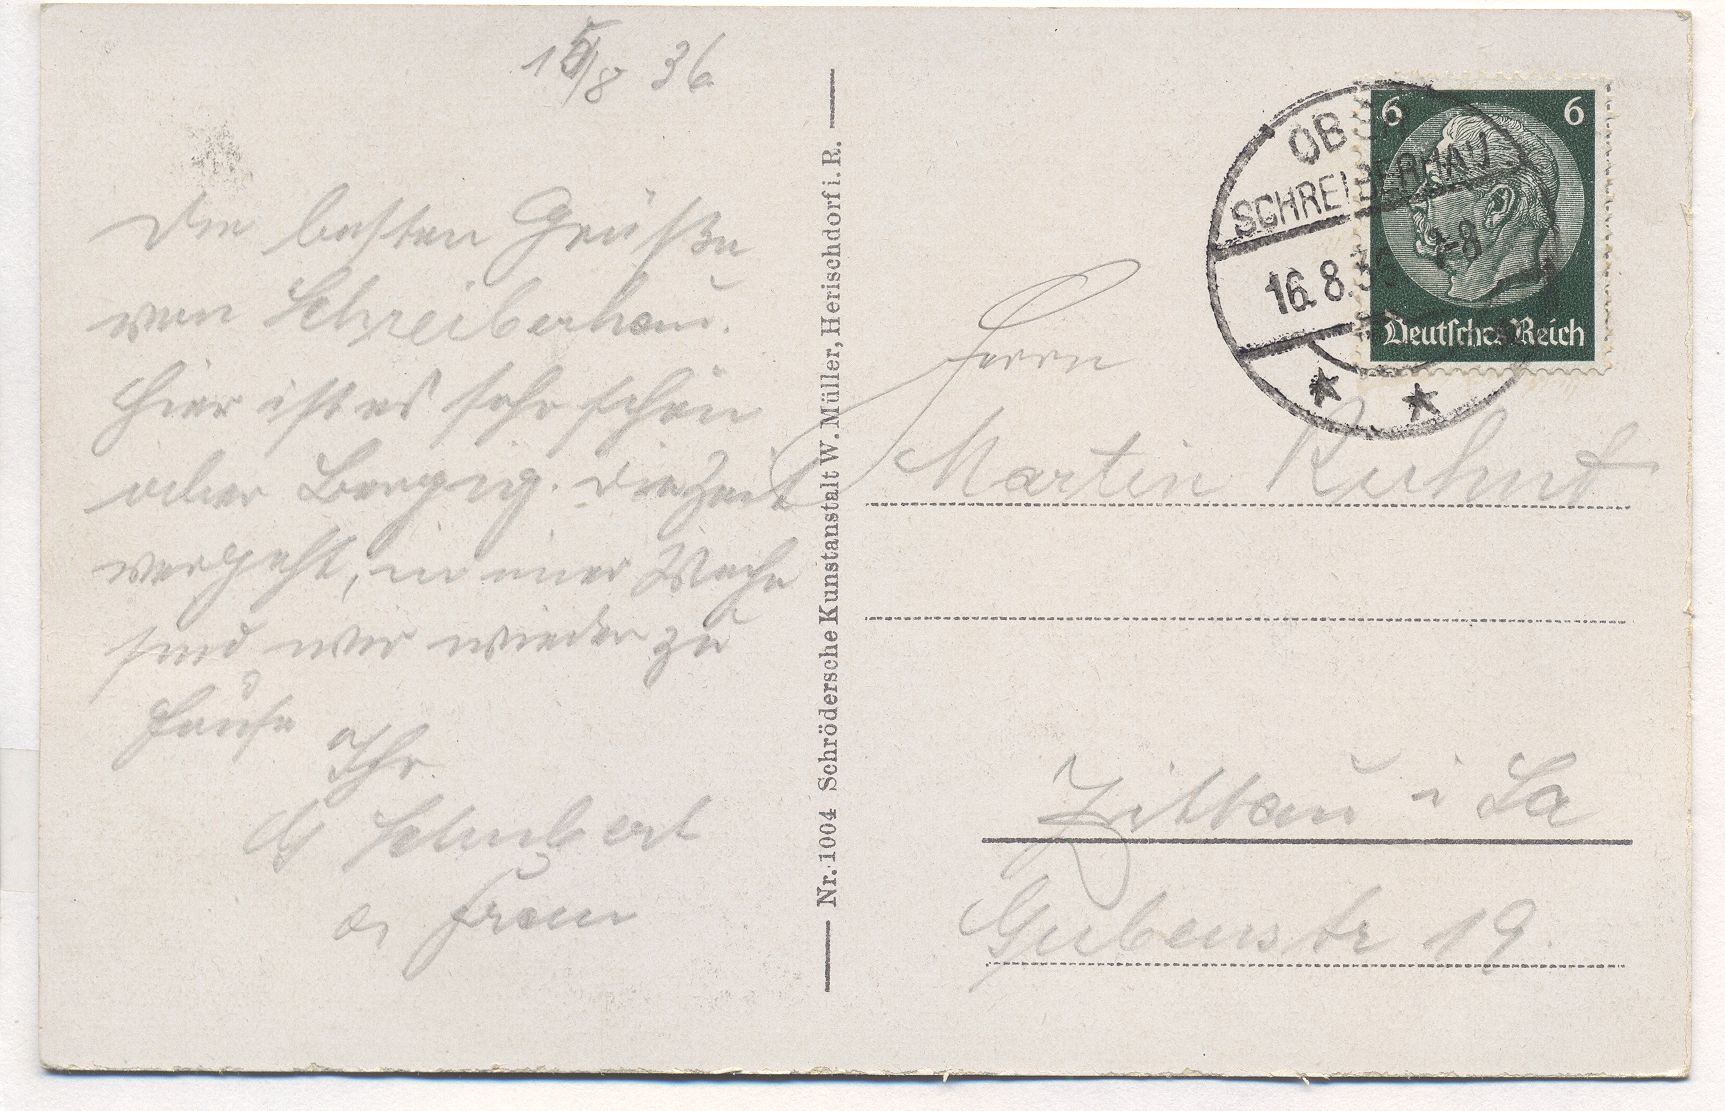 15/8 36
Die besten Grüße
von Schreiberhau.
Hier ist es sehr schön
aber Bergig. Die Zeit
vergeht, in einer Woche
sind wir wieder zu
Hause
Ihr
Schubert
u. Frau
Nr. 1004 Schrödersche Kunstanstalt W. Müller, Herischdorf i. R.
OBER
SCHREIBERHAU
16.8.36 7-8
6 6
Deutsches Reich
Herrn
Martin Kuhnt
Zittau i Sa
Gubenstr 19.